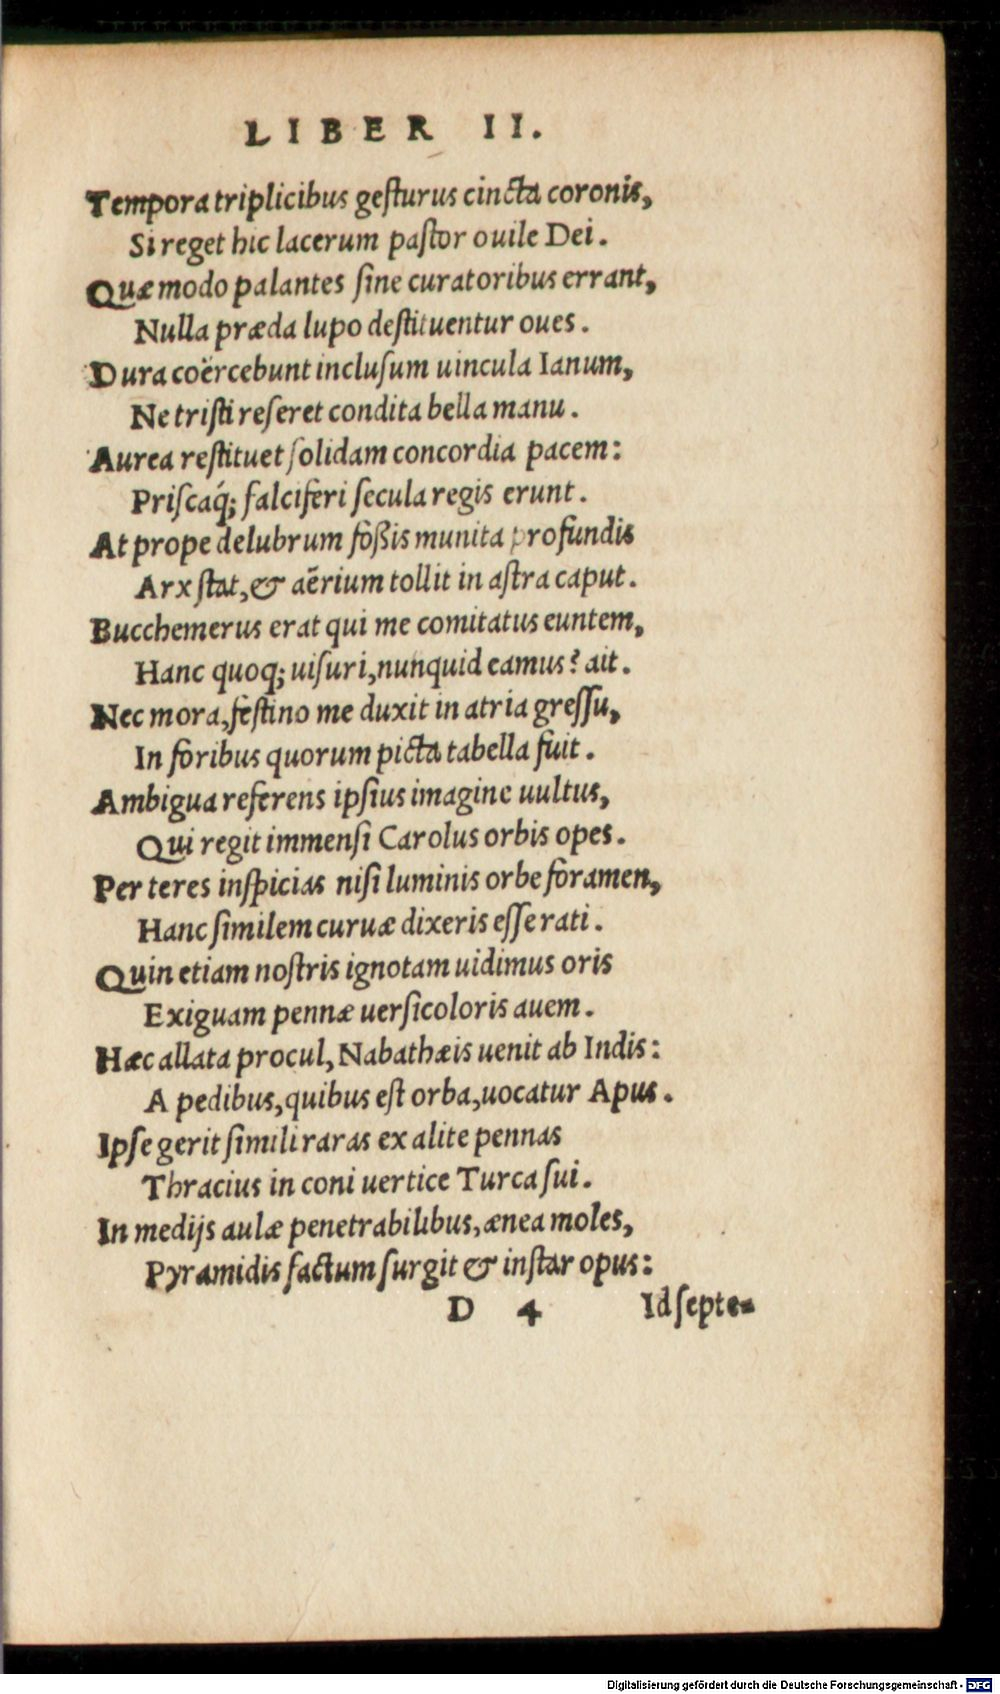 LIBER II.
Tempora triplicibus gesturus cincta coronis,
Si reget hic lacerum pastor ouile Dei.
Quæ modo palantes sine curatoribus errant,
Nulla præda lupo destituentur oues.
Dura coërcebunt inclusum uincula Ianum,
Ne tristi reseret condita bella manu.
Aurea restituet solidam concordia pacem:
Priscaq́; falciferi secula regis erunt.
At prope delubrum foßis munita profundis
Arx stat, & aërium tollit in astra caput.
Bucchemerus erat qui me comitatus euntem,
Hanc quoq; uisuri, nunquid eamus? ait.
Nec mora, festino me duxit in atria gressu,
In foribus quorum picta tabella fuit.
Ambigua referens ipsius imagine uultus,
Qui regit immensi Carolus orbis opes.
Per teres inspicias nisi luminis orbe foramen,
Hanc similem curuæ dixeris esse rati.
Quin etiam nostris ignotam uidimus oris
Exiguam pennæ uersicoloris auem.
Hæc allata procul, Nabathæis uenit ab Indis:
A pedibus, quibus est orba, uocatur Apus.
Ipse gerit simili raras ex alite pennas
Thracius in coni uertice Turca sui.
In medijs aulæ penetrabilibus, ænea moles,
Pyramidis factum surgit & instar opus:
D 4 Id septe=
Digitalisierung gefördert durch die Deutsche Forschungsgemeinschaft - DFG